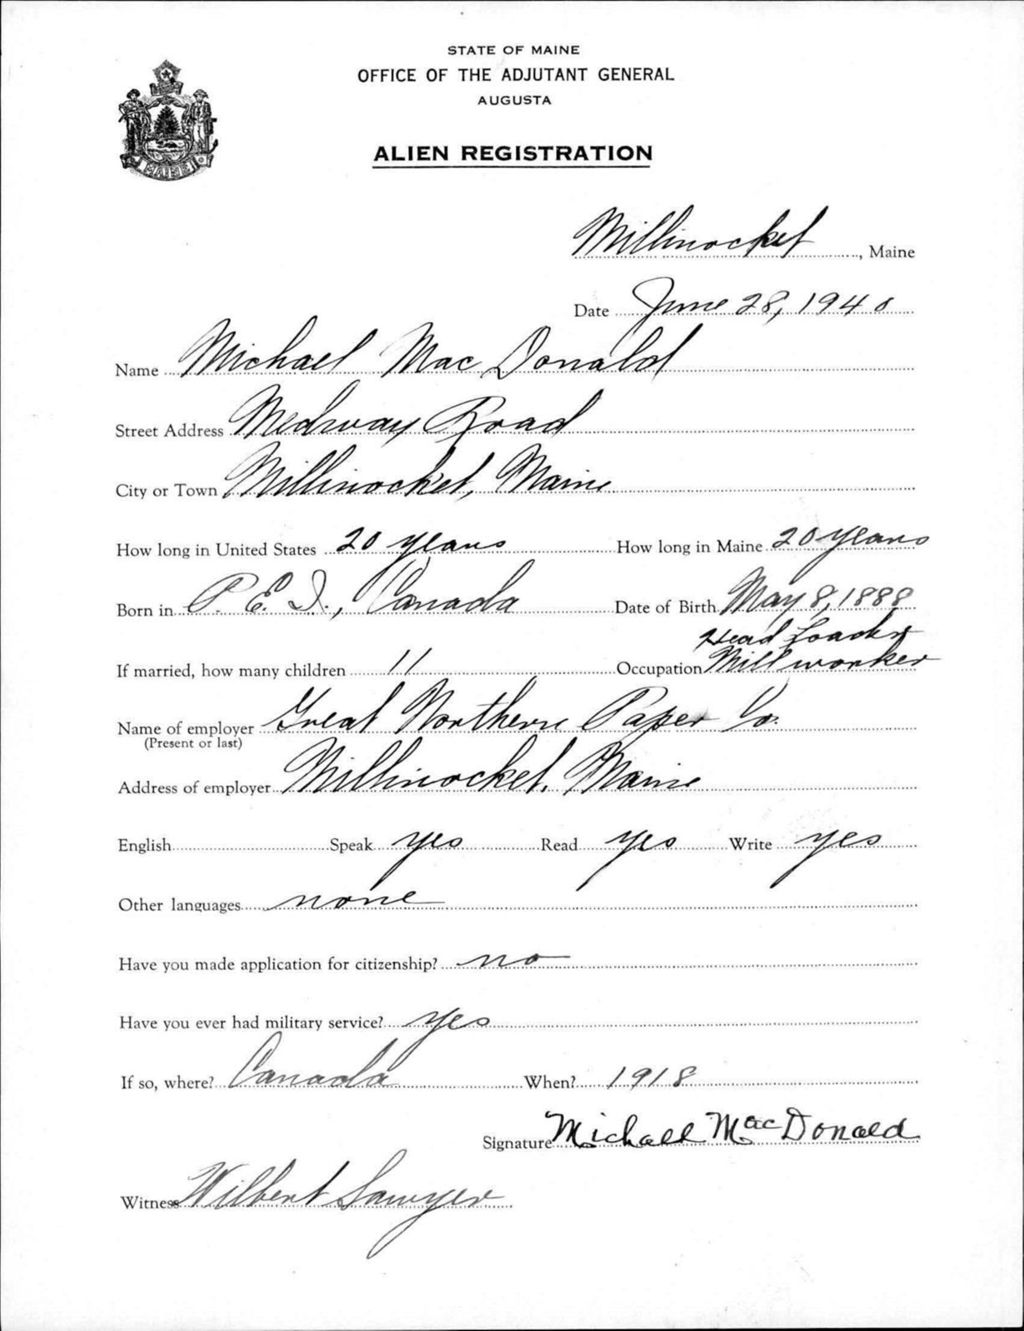 STATE OF MAINE
OFFICE OF THE ADJUTANT GENERAL
AUGUSTA
ALIEN REGISTRATION
MAINE
Millinocket, Maine
Date June 28, 1940
Name Michael MacDonald
Street Address Medway Road
City or Town Millinocket, Maine
How long in United States 20 years How long in Maine 20 years
Born in P.E.I., Canada Date of Birth May 8, 1888
Head Loader
If married, how many children 11 Occupation Millworker
Name of employer Great Northern Paper Co.
(Present or last)
Address of employer Millinocket, Maine
English Speak yes Read yes Write yes
Other languages none
Have you made application for citizenship? no
Have you ever had military service? yes
If so, where? Canada When? 1918
Signature Michael MacDonald
Witness Wilbert Sawyer